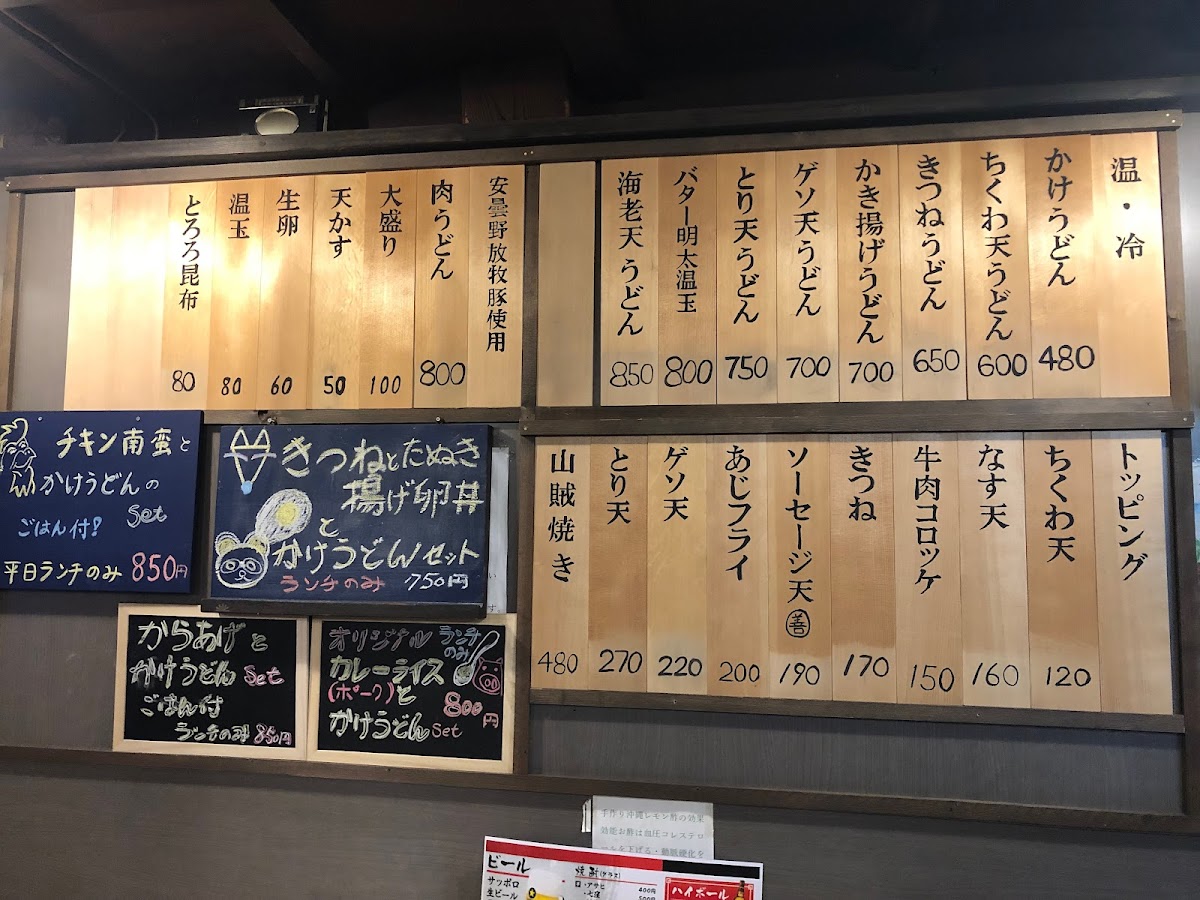 温・冷
かけうどん 480
ちくわ天うどん 600
きつねうどん 650
かき揚げうどん 700
ゲソ天うどん 700
とり天うどん 750
バター明太温玉 800
海老天うどん 850
安曇野放牧豚使用
肉うどん 800
大盛り 100
天かす 50
生卵 60
温玉 80
とろろ昆布 80
トッピング
ちくわ天 120
なす天 160
牛肉コロッケ 150
きつね 170
ソーセージ天 善 190
あじフライ 200
ゲソ天 220
とり天 270
山賊焼き 480
チキン南蛮と
かけうどんの
set
ごはん付!
平日ランチのみ 850円
きつねとたぬき
揚げ卵丼
と
かけうどんセット
ランチのみ 750円
からあげと
かけうどん set
ごはん付
ランチのみ 850円
オリジナル ランチのみ
カレーライス
(ポーク)と 800円
かけうどん set
手作り沖縄レモン酢の効果
効能お酢は血圧コレステロ
ールを下げる・動脈硬化を
ビール
サッポロ
生ビール
焼酎(グラス)
400円
500円
ハイボール